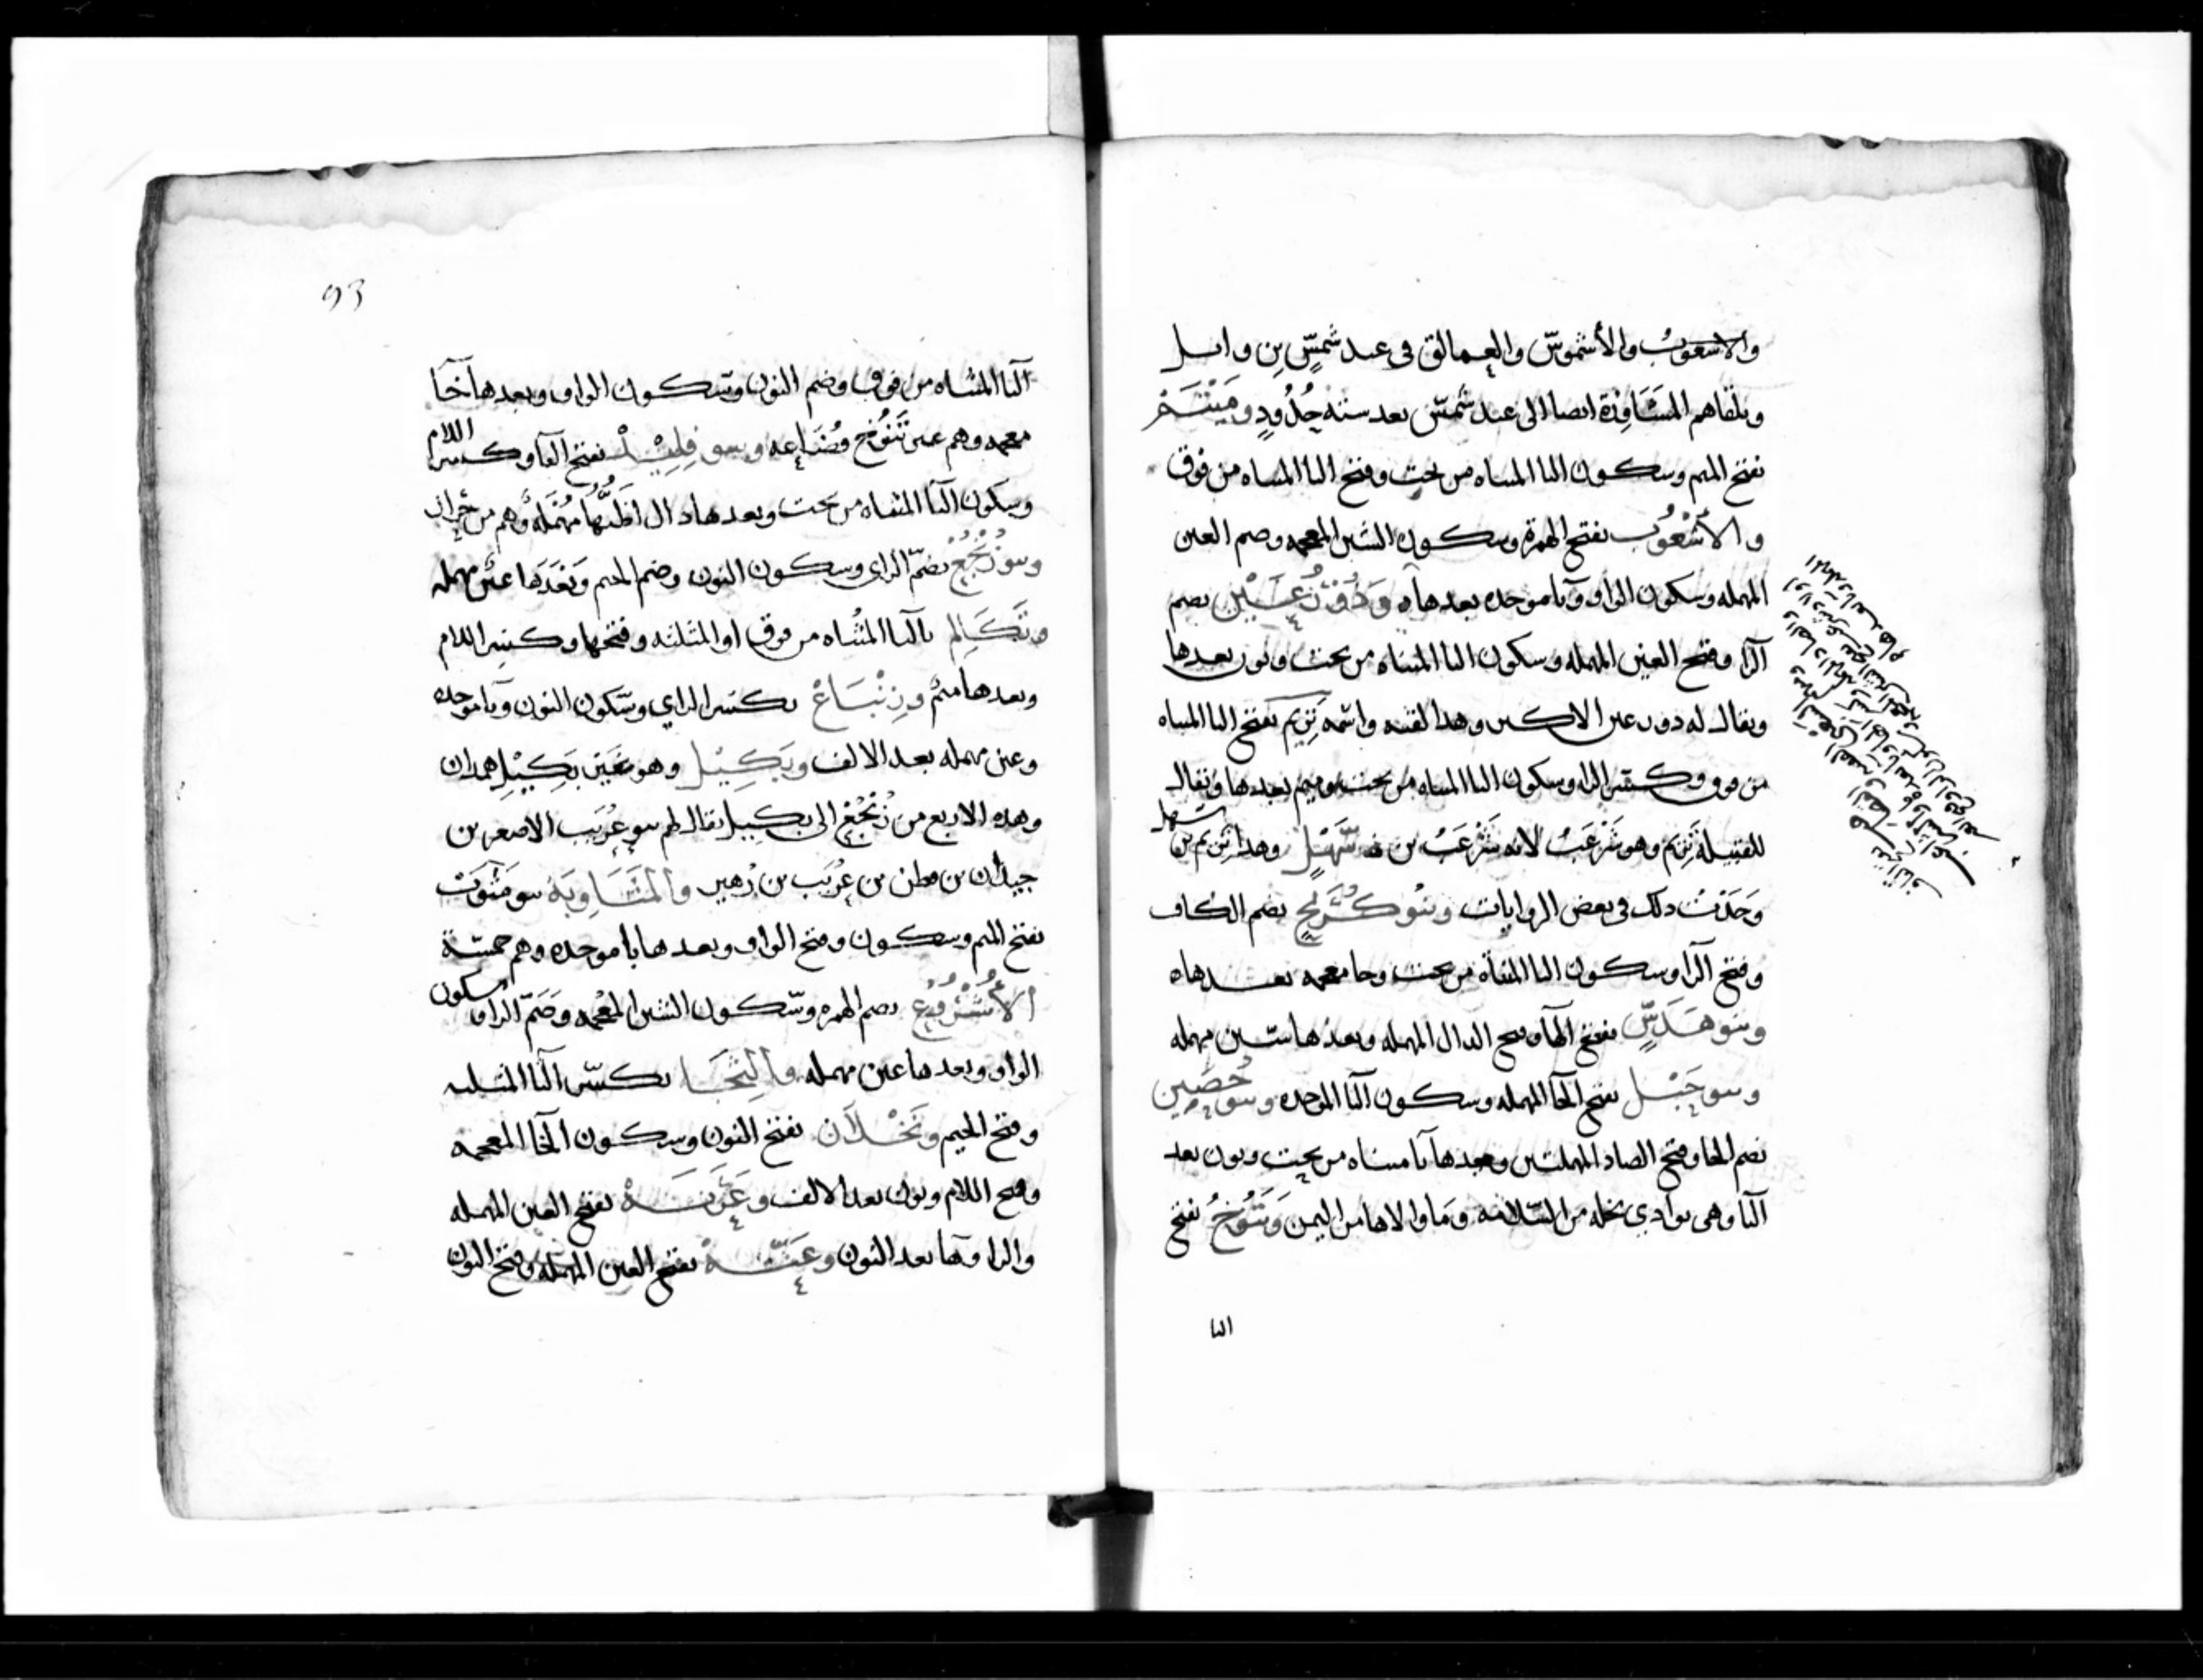 والاشعوب والأشموس والعمالق في عبد شمس بن وايل
ويلقاهم المشافرة ايضا الى عبد شمس بعد ستة جدود وميتم
بفتح الميم وسكون اليا المثناه من تحت وفتح التا المثناه من فوق
والأشعوب بفتح الهمزة وسكون الشين المعجمه وضم العين
المهمله وسكون الواو وبا موحده بعدها ه وذو رعين بضم
الرا وفتح العين المهمله وسكون اليا المثناه من تحت ونون بعدها
ويقال له ذورعين الاكبر وهذا لقبه واسمه يريم بفتح اليا المثناه
من فوق وكسر الرا وسكون اليا المثناه من تحت وميم بعدها ويقال
للقبيلة يريم وهو شرعب لانه شرعب بن سهل وهذا يريم بن سهل
وجدت ذلك في بعض الروايات وبنو كريخ بضم الكاف
وفتح الرا وسكون اليا المثناة من تحت وخا معجمه بعدها ه
وبنو هدس بفتح الها وفتح الدال المهمله وبعدها سين مهمله
وبنو حبل بفتح الحا المهمله وسكون البا الموحده وبنو حصين
بضم الحا وفتح الصاد المهملتين وبعدها يا مثناه من تحت ونون بعد
اليا وهي بوادي نخله من السلامه وما والاها من اليمن وتنوخ بفتح
التا
93
التا المثناه من فوق وضم النون وسكون الواو وبعدها خا
معجمه وهم غير تنوخ قضاعه وبنو فليد بفتح الفا وكسر اللام
وسكون اليا المثناه من تحت وبعدها دال اظنها مهمله وهم من
وبنو زنجع بضم الزاي وسكون النون وضم الجيم وبعدها عين مهمله
وتكالم بالتا المثناه من فوق او المثلثه وفتحها وكسر اللام
وبعدها ميم وزنباع بكسر الزاي وسكون النون وبا موحده
وعين مهمله بعد الالف وبكيل وهو غير بكيل همدان
وهذه الاربع من زنجع الى بكيل يقال لهم بنو عريب الاصغر بن
جيدان بن قطن بن عريب بن زهير والمثاوبة بنو مثوب
بفتح الميم وسكون وفتح الواو وبعدها با موحده وهم خمسة
الأشروع بضم الهمزه وسكون الشين المعجمه وضم الرا وسكون
الواو وبعدها عين مهمله والثجا بكسر الثا المثلثه
وفتح الجيم ونخلان بفتح النون وسكون الخا المعجمه
وفتح اللام ونون بعد الالف وعرنة بفتح العين المهمله
والرا وها بعد النون وعنة بفتح العين المهمله وفتح النون